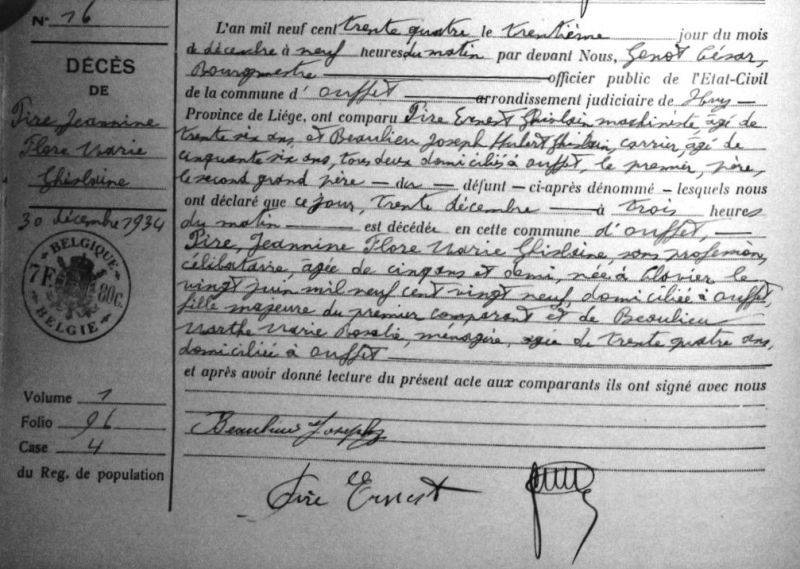 N° 16
DÉCÈS
DE
Pire Jeannine
Flore Marie
Ghislaine
30 décembre 1934
BELGIQUE
7F. 80c.
BELGIE
Volume 1
Folio 96
Case 4
du Reg. de population
L'an mil neuf cent trente quatre le trentième jour du mois
de décembre à neuf heures du matin par devant Nous, Genot César,
Bourgmestre officier public de l'Etat-Civil
de la commune d'Ouffet arrondissement judiciaire de Huy —
Province de Liége, ont comparu Pire Ernest Ghislain machiniste, âgé de
trente six ans, et Beaulieu Joseph Hubert Ghislain, carrier, âgé de
cinquante six ans, tous deux domiciliés à Ouffet, le premier, père,
le second grand père — du — défunt — ci-après dénommé — lesquels nous
ont déclaré que ce jour, trente décembre — à trois heures
du matin — est décédée en cette commune d'Ouffet, —
Pire, Jeannine Flore Marie Ghislaine, sans profession,
célibataire, âgée de cinq ans et demi, née à Clavier le
vingt juin mil neuf cent vingt neuf, domiciliée à Ouffet,
fille majeure du premier comparant et de Beaulieu
Marthe Marie Rosalie, ménagère, âgée de trente quatre ans,
domiciliée à Ouffet
et après avoir donné lecture du présent acte aux comparants ils ont signé avec nous
Beaulieu Joseph
Pire Ernest